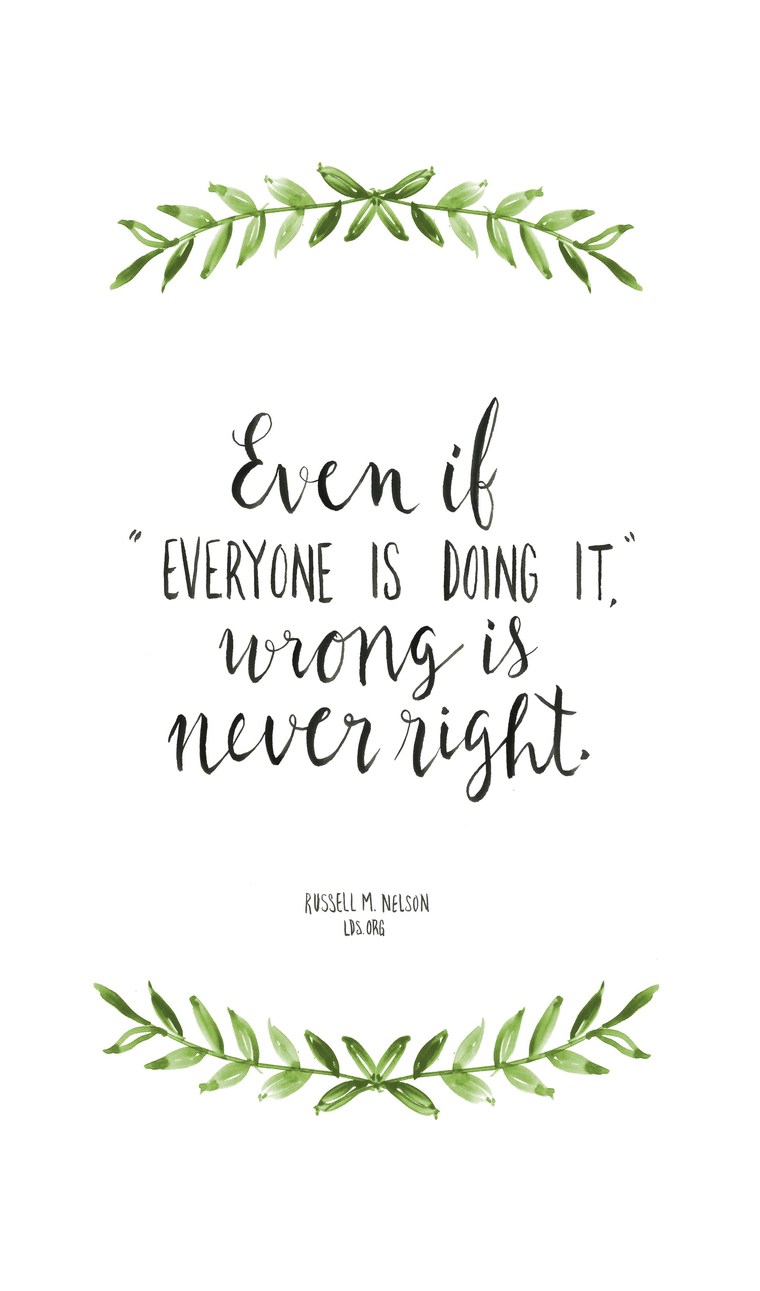 Even if
"EVERYONE IS DOING IT,"
wrong is
never right.
RUSSELL M. NELSON
LDS.ORG